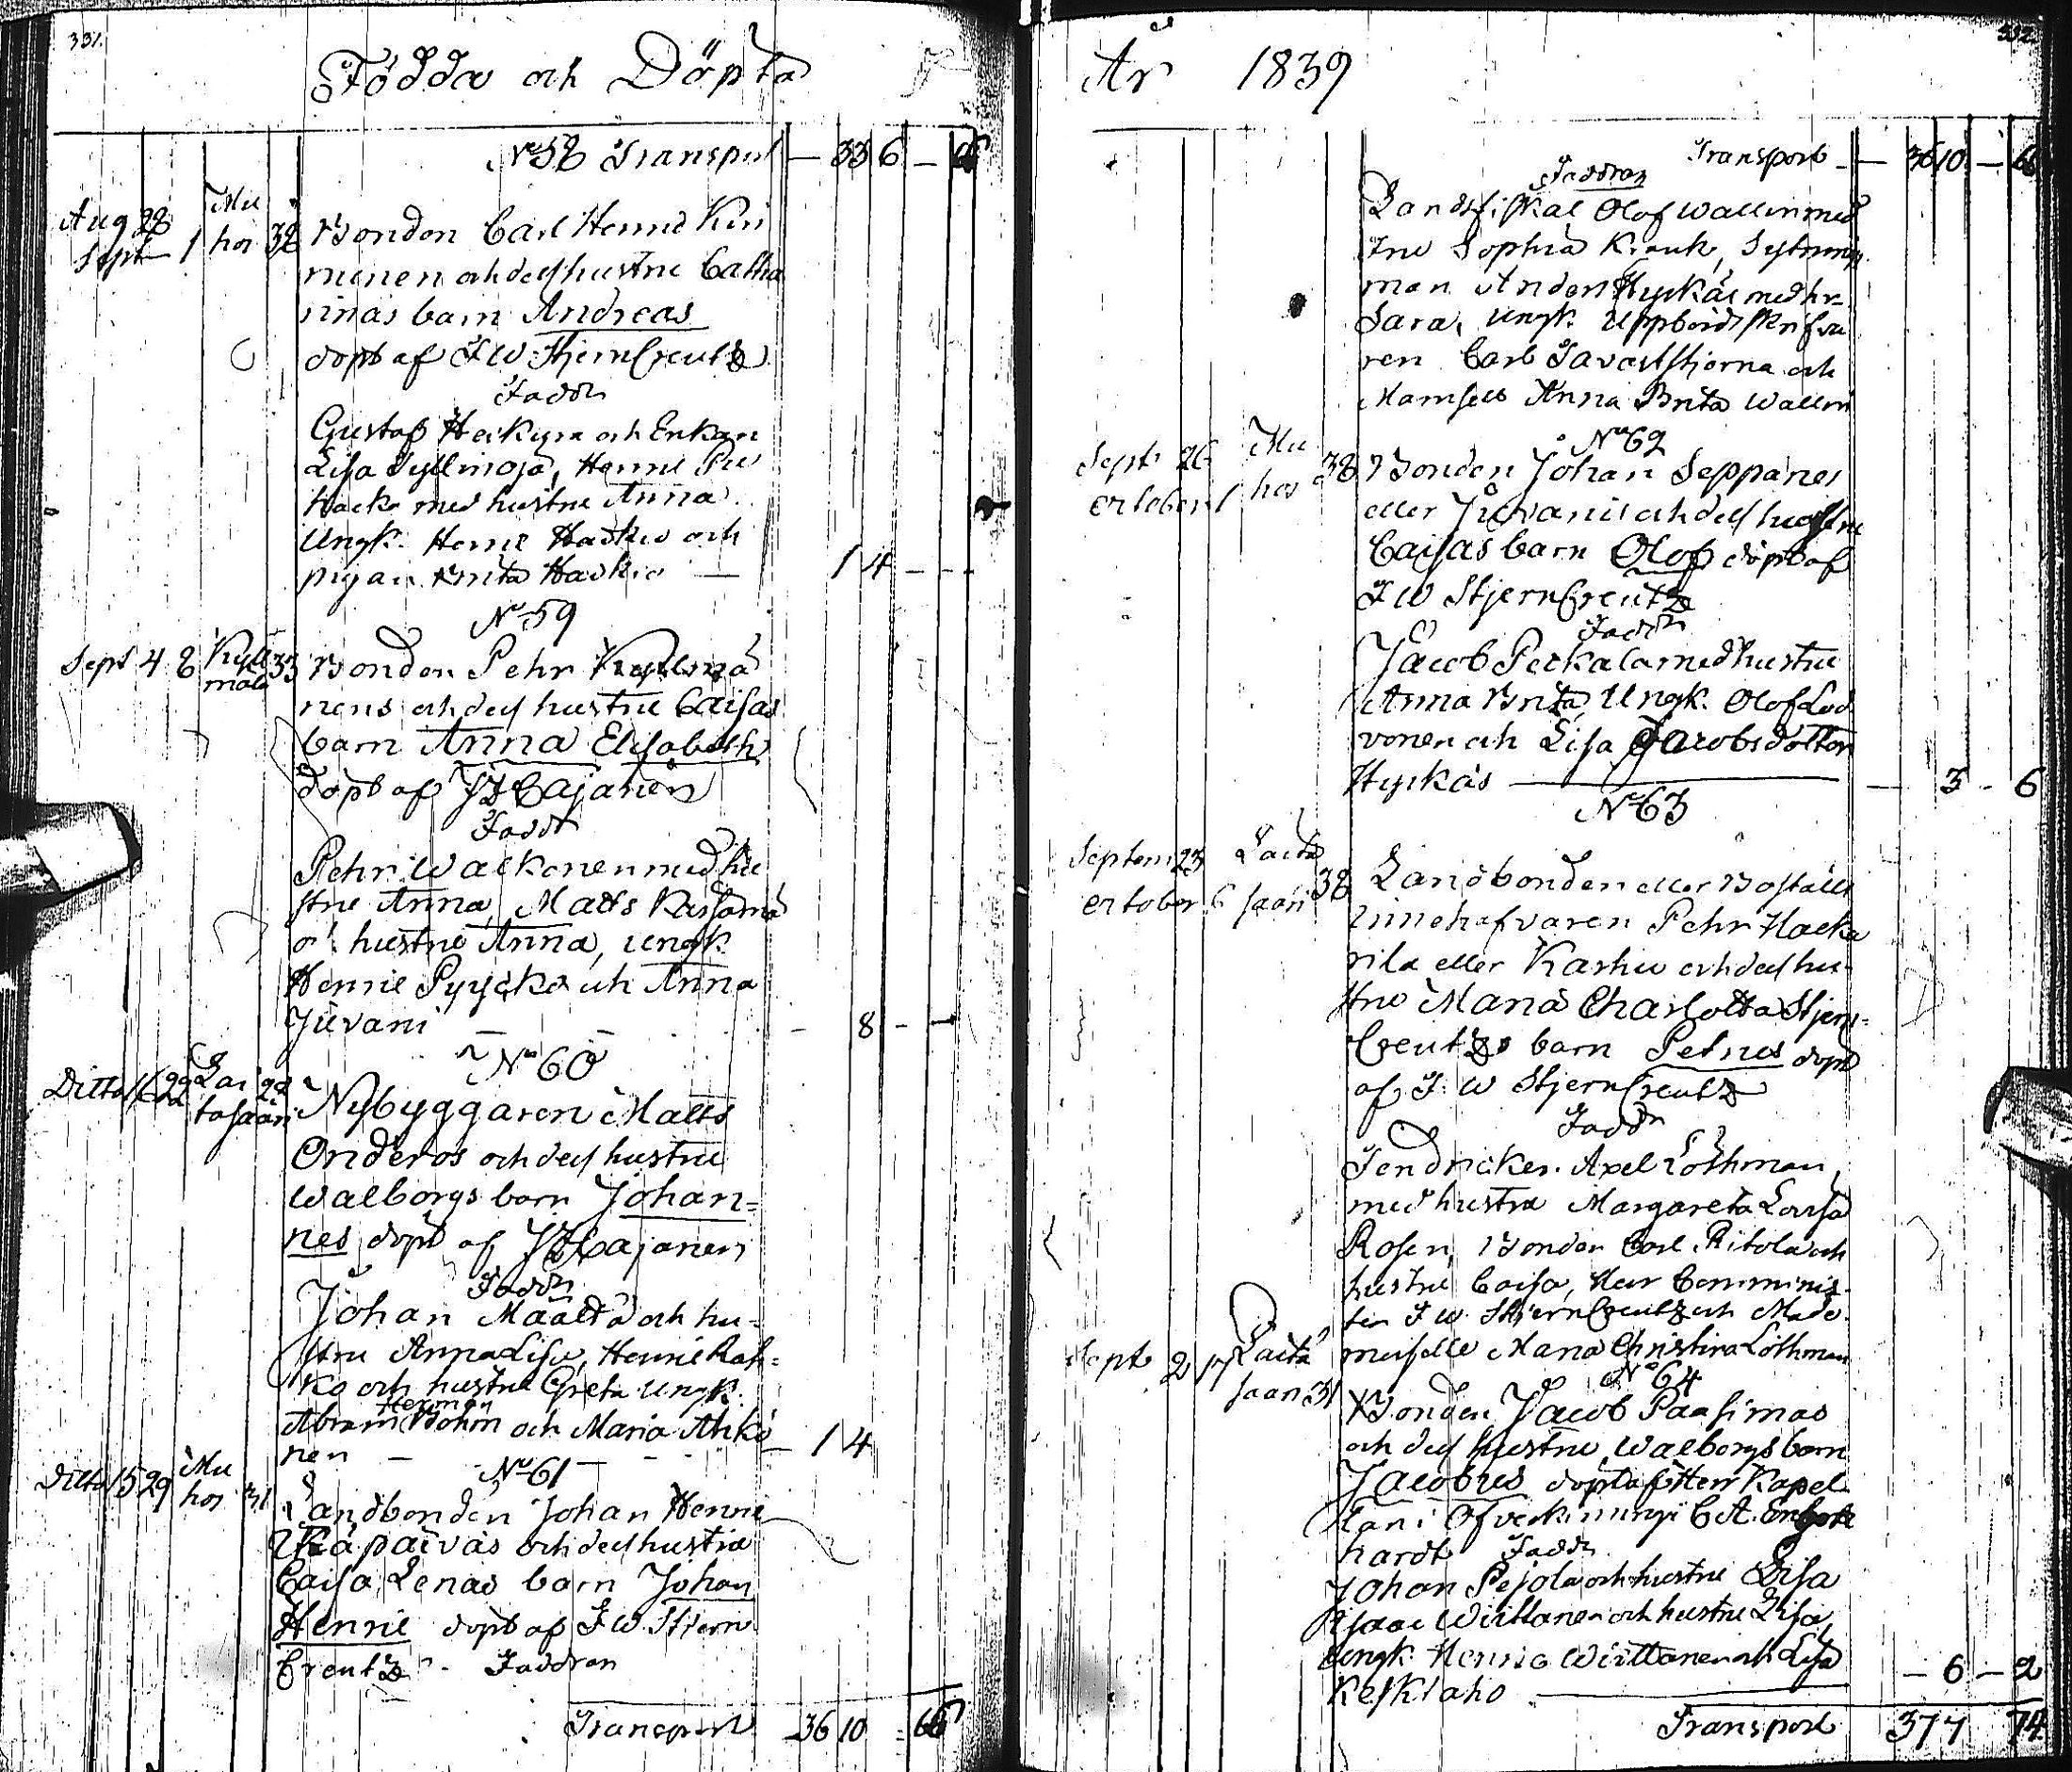 331.
Födda och Döpta
No 58 Transport — 33 6 —
Aug 28
Sept 1
Mu
hos
38
Bonden Carl Henric Kin
nunen och dess hustru Catha
rinas barn Andreas
döpt af F W StjernCreutz
Faddr
Gustaf Heikura och Enkan
Lisa Sullinoja, Henric Pu
hacka med hustru Anna
Ungk. Henric Hackio och
pigan Brita Hackio — 1 4 - - -
No 59
Sept 4 8 33
Bonden Pehr
nens och dess hustru Caisas
barn Anna Elisabeth
döpt af J Z Cajanen
Faddr
Pehr Walkonen med hu
stru Anna, Matts
o hustru Anna, ungk.
Henric Pyycko och Anna
Juvani — — - 8 - -
No 60
Ditto 16 22 Lai 22
tasaari
Nybyggaren Matts
Onderos och dess hustru
Walborgs barn Johan=
nes döpt af J Z Cajanen
Faddr
Johan Määttä och hu=
stru Anna Lisa, Henric Rah=
ko och hustru Greta Ungk.
Herman
Abram Bohm och Maria Ahko
nen — - - - 1 4
No 61
Ditto 15 29 Mu
hos 31
Landbonden Johan Henric
päiväs och dess hustru
Caisa Lenas barn Johan
Henric döpt af F W. Stjern
Creutz. Faddran
Transport 36 10 - 66
332.
År 1839
Transport — 36 10 — 66
Faddran
Landsfiskal Olof Wallin med
Fru Sophia Krank, Sytnings
man Anders Hyrkäs med hr
Sara, Ungk. Uppbördsskrifva
ren Carl Savaststjerna och
Mamsell Anna Brita Wallin
No 62
Sept 26
October 1
Mu
hos 38
Bonden Johan Seppänes
eller Juvanis och dess hustru
Caisas barn Olof döpt af
F W StjernCreutz
Faddr
Jacob Peckala med hustru
Anna Brita, Ungk. Olof Lod
vonen och Lisa Jacobsdotter
Hyrkäs — — 3 - 6
No 63
Septem 23
October 6
Laita
saari 38
Landbonden eller Boställs
innehafvaren Pehr Hacka
rila eller Karhu och dess hu-
stru Maria Charlotta Stjern=
Creutzs barn Petrus döpt
af F. W StjernCreutz
Faddr
Fendricken Axel Löthman,
med hustru Margareta Lovisa
Rosen, Bonden Carl Ritola och
hustru Caisa, Herr Comminis-
ter F W. StjernCreutz och Made-
moiselle Maria Christina Löthman
No 64
Sept 2 17 Laita
saari 31
Bonden Jacob Paasimas
och dess hustru Walborgs barn
Jacobus döpt af Herr Kapel
lan i Öfverkiminge C A.
hardt Faddr
Johan Pejola och hustru Lisa
Isaac Wirttanen och hustru Lisa,
Ungk. Henric Wirttanen och Lisa
Keskiaho — — 6 — 2
Transport 37 7 74